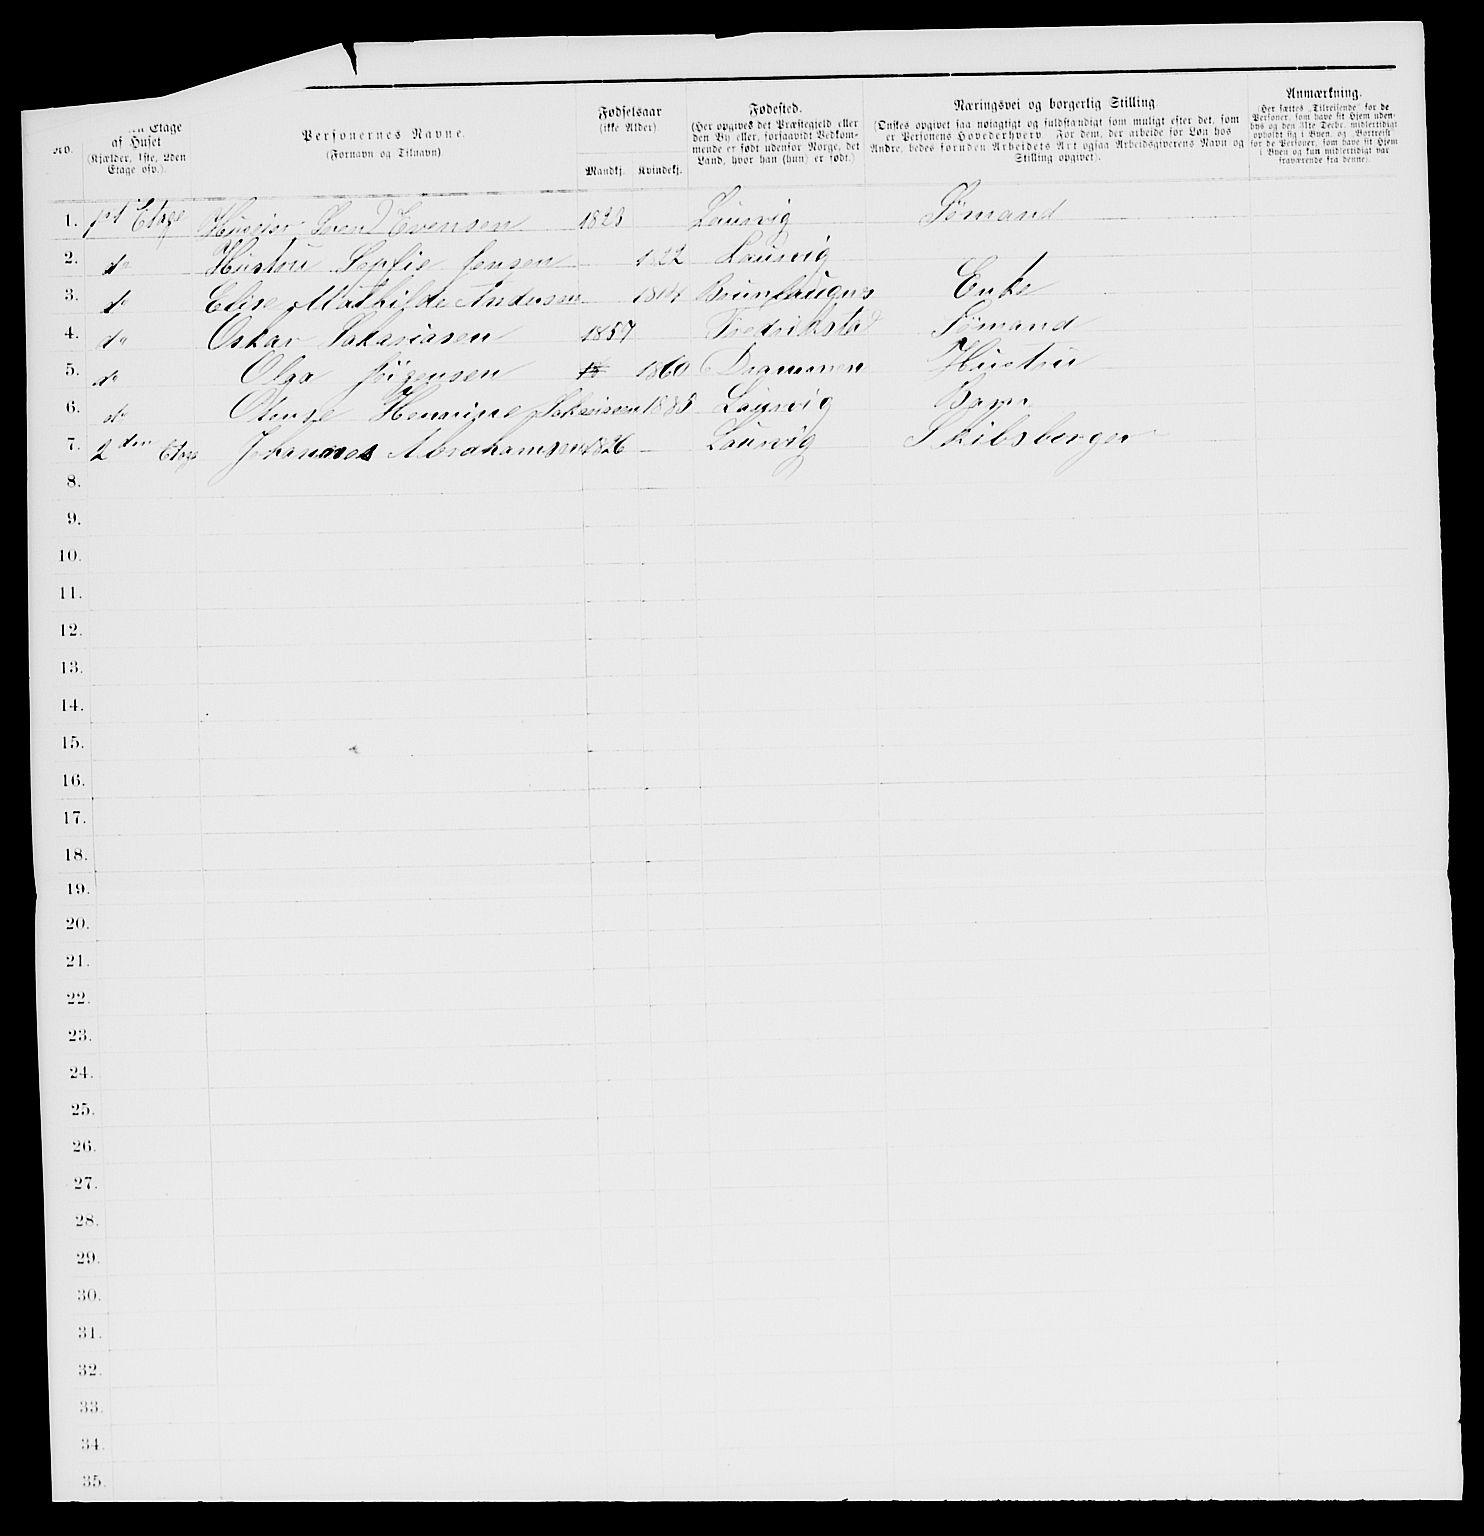 No.
Etage
af Huset
(Kjælder, 1ste, 2den
Etage osv.).
Personernes Navne.
(Fornavn og Tilnavn)
Fødselsaar
(ikke Alder)
Mandkj. Kvindekj.
Fødested.
(Her opgives det Præstegjeld eller
den By eller, forsaavidt Vedkom-
mende er født udenfor Norge, det
Land, hvor han (hun) er født.)
Næringsvei og borgerlig Stilling
(Ønskes opgivet saa nøiagtigt og fuldstændigt som muligt efter det, som
er Personens Hovederhverv For dem, der arbeide for Løn hos
Andre, bedes foruden Arbeidets Art ogsaa Arbeidsgiverens Navn og
Stilling opgivet).
Anmærkning.
(Her sættes „Tilreisende" for de
Personer, som have sit Hjem uden-
bys og den 31te Decbr. midlertidigt
opholdt sig i Byen, og „Bortreist"
for de Personer, som have sit Hjem
i Byen og kun midlertidigt var
fraværende fra denne).
1. 1st Etage Huseier Søren Evensen 1823 Laurvig Sømand
2. do Hustru Sophie Jensen 1822 Laurvig
3. do Elise Mathilde Andersen 1814 Brunlaugnæs Enke
4. do Oskar Sakariasen 1857 Fredrikstad Sømand
5. do Olga Jørgensen 1860 Drammen Hustru
6. do Henrisse 1883 Laurvig Barn
7. 2den Etage Johannes Abrahamsen 1826 Laurvig Skibsberger
8.
9.
10.
11.
12.
13.
14.
15.
16.
17.
18.
19.
20.
21.
22.
23.
24.
25.
26.
27.
28.
29.
30.
31.
32.
33.
34.
35.